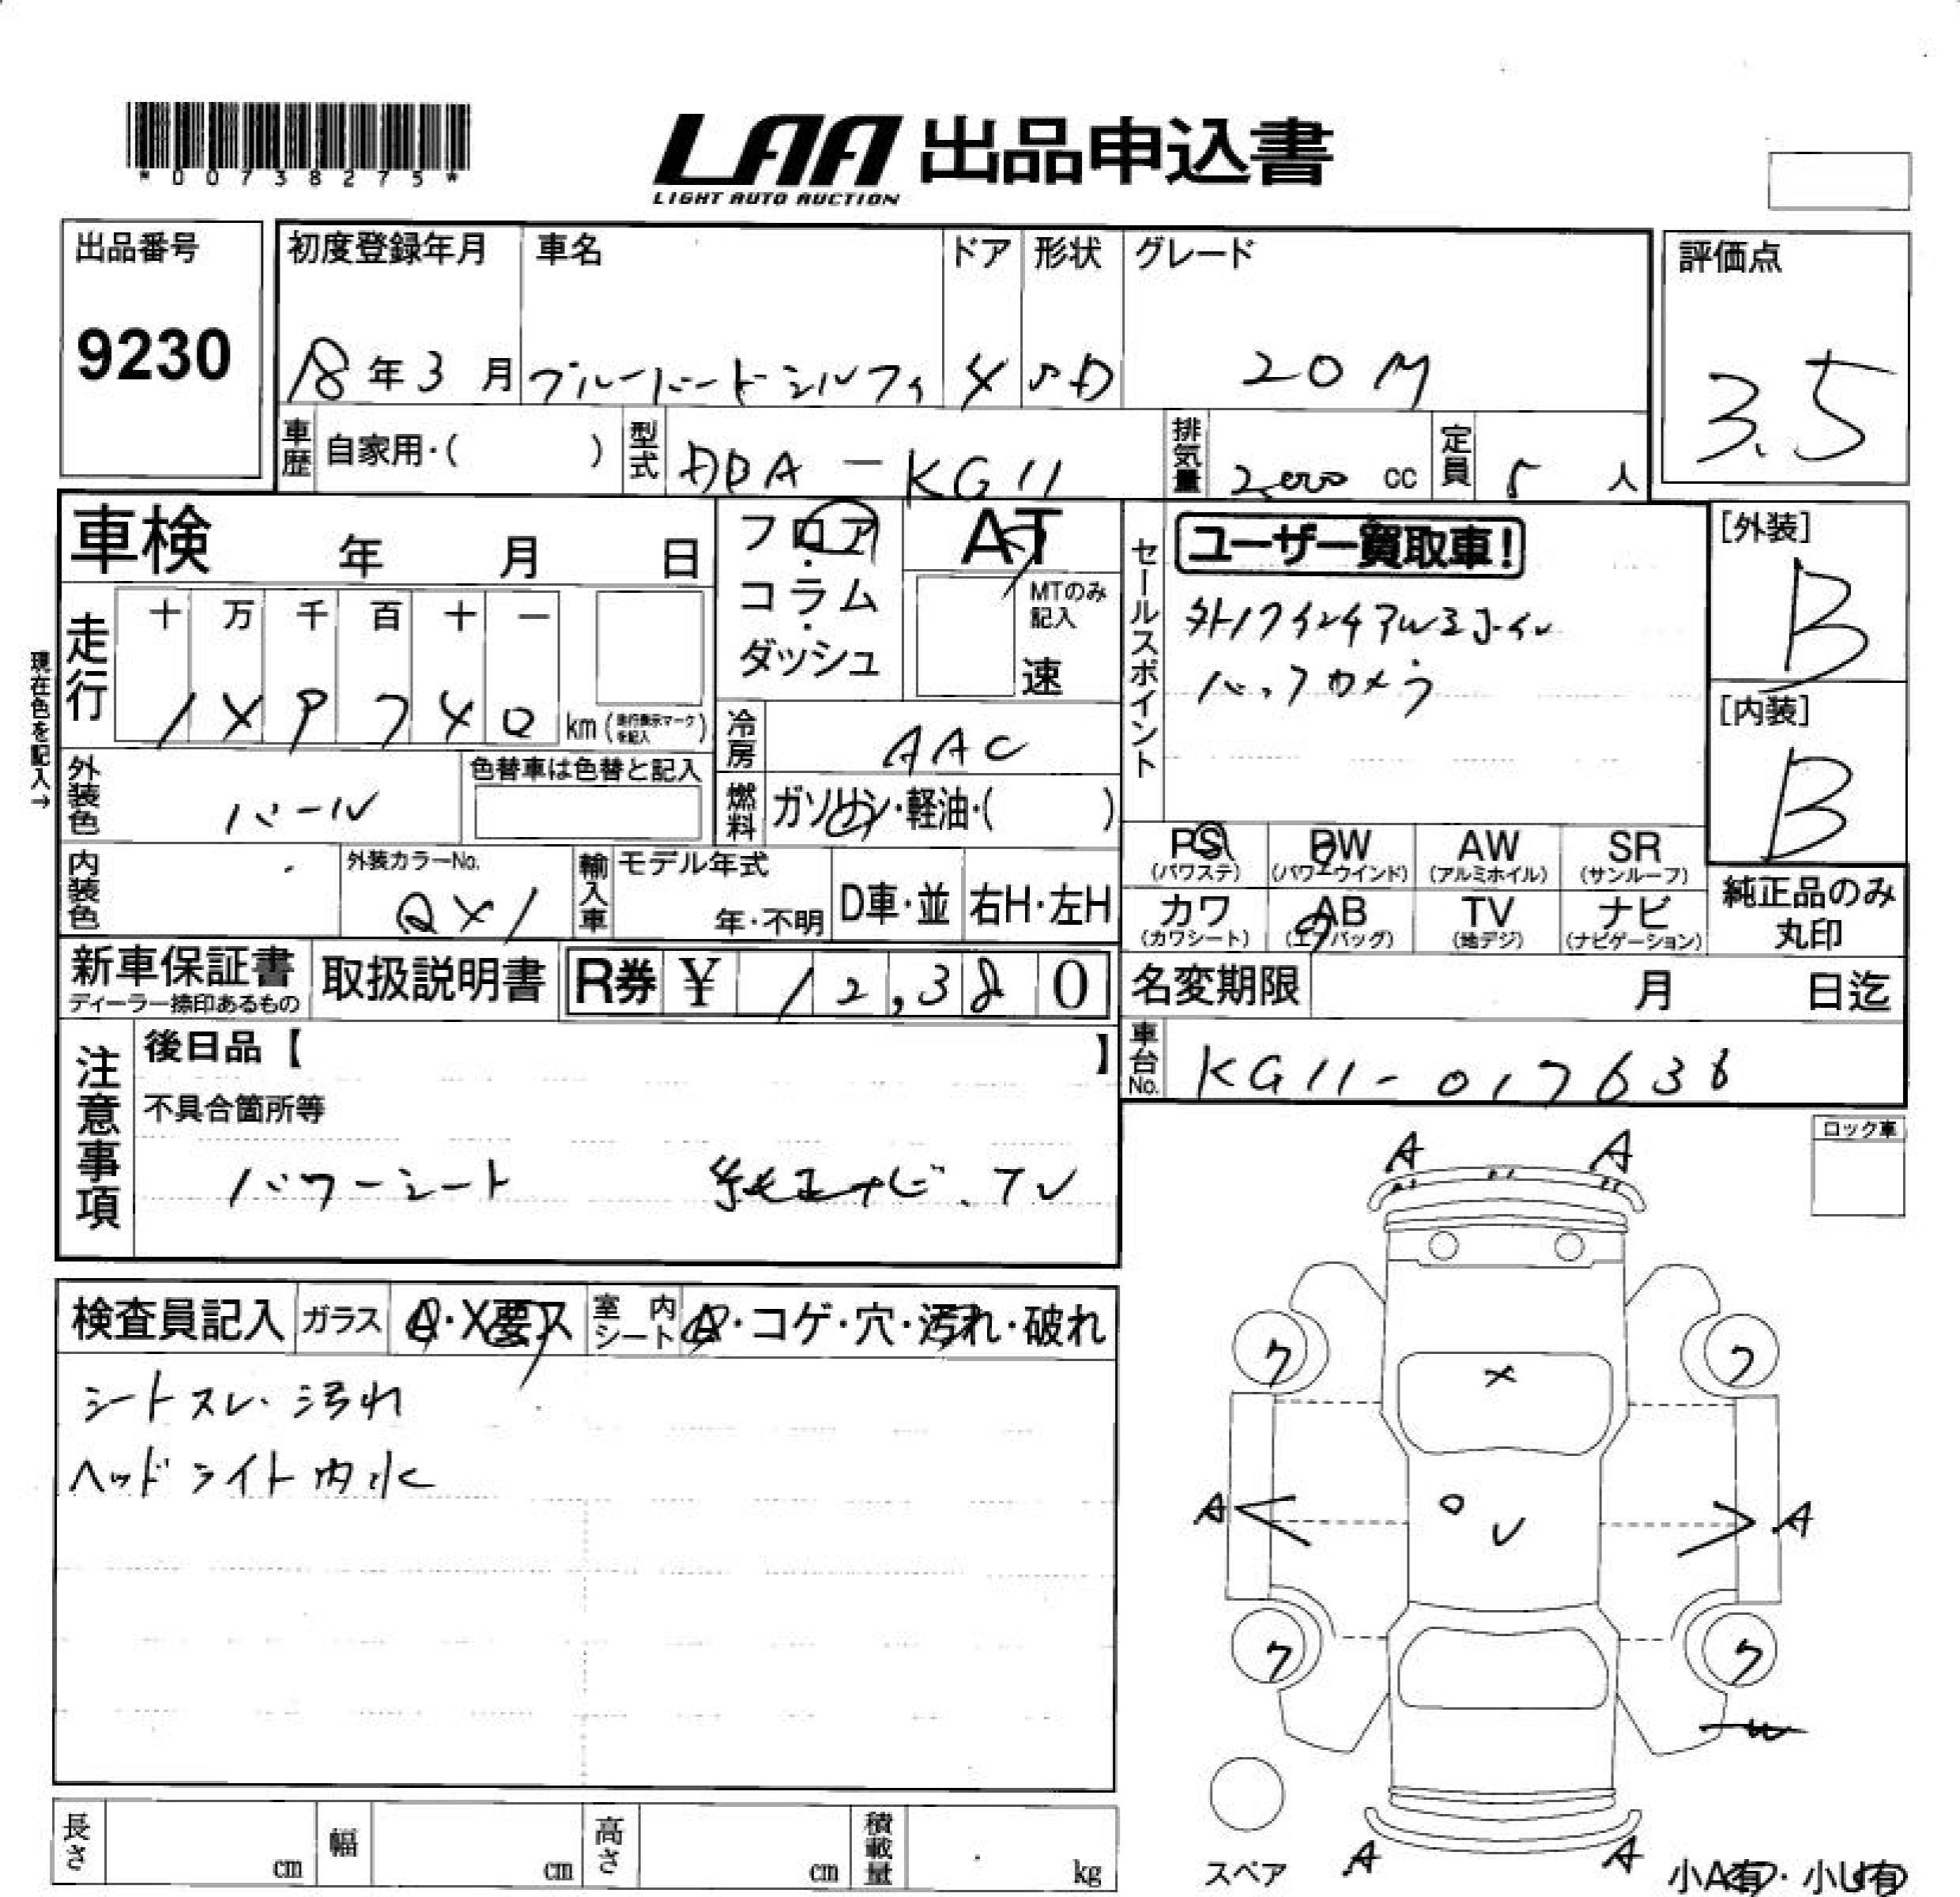 *00738275*
LAA 出品申込書
LIGHT AUTO AUCTION
出品番号
9230
初度登録年月
18年3月
車名
ブルーバードシルフィ
ドア
4
形状
SD
グレード
20M
評価点
3.5
車歴 自家用・( )
型式 DBA-KG11
排気量 2,000 cc
定員 5 人
車検 年 月 日
フロア・コラム・ダッシュ
AT
MTのみ記入
速
セールスポイント
ユーザー買取車!
外17インチアルミホイル
バックカメラ
[外装]
B
[内装]
B
現在色を記入→
走行
十 万 千 百 十 一
1 X 9 7 4 0 km (走行表示マークを記入)
冷房 AAC
外装色 パール
色替車は色替と記入
燃料 ガソリン・軽油・( )
PS (パワステ)
PW (パワーウインド)
AW (アルミホイル)
SR (サンルーフ)
内装色
外装カラーNo.
QX1
輸入車
モデル年式
年・不明
D車・並
右H・左H
カワ (カワシート)
AB (エアバッグ)
TV (地デジ)
ナビ (ナビゲーション)
純正品のみ
丸印
新車保証書
ディーラー捺印あるもの
取扱説明書
R券 ¥ 12,380
名変期限 月 日迄
車台No. KG11-017636
注意事項
後日品【 】
不具合箇所等
パワーシート 純正ナビ.TV
ロック車
検査員記入
ガラス A・X要ス
室内シート A・コゲ・穴・汚れ・破れ
シートスレ・汚れ
ヘッドライト内水
A A
ク ク
X
A A
ク ク
W
A A
スペア
小A有・小U有
長さ cm
幅 cm
高さ cm
積載量 kg